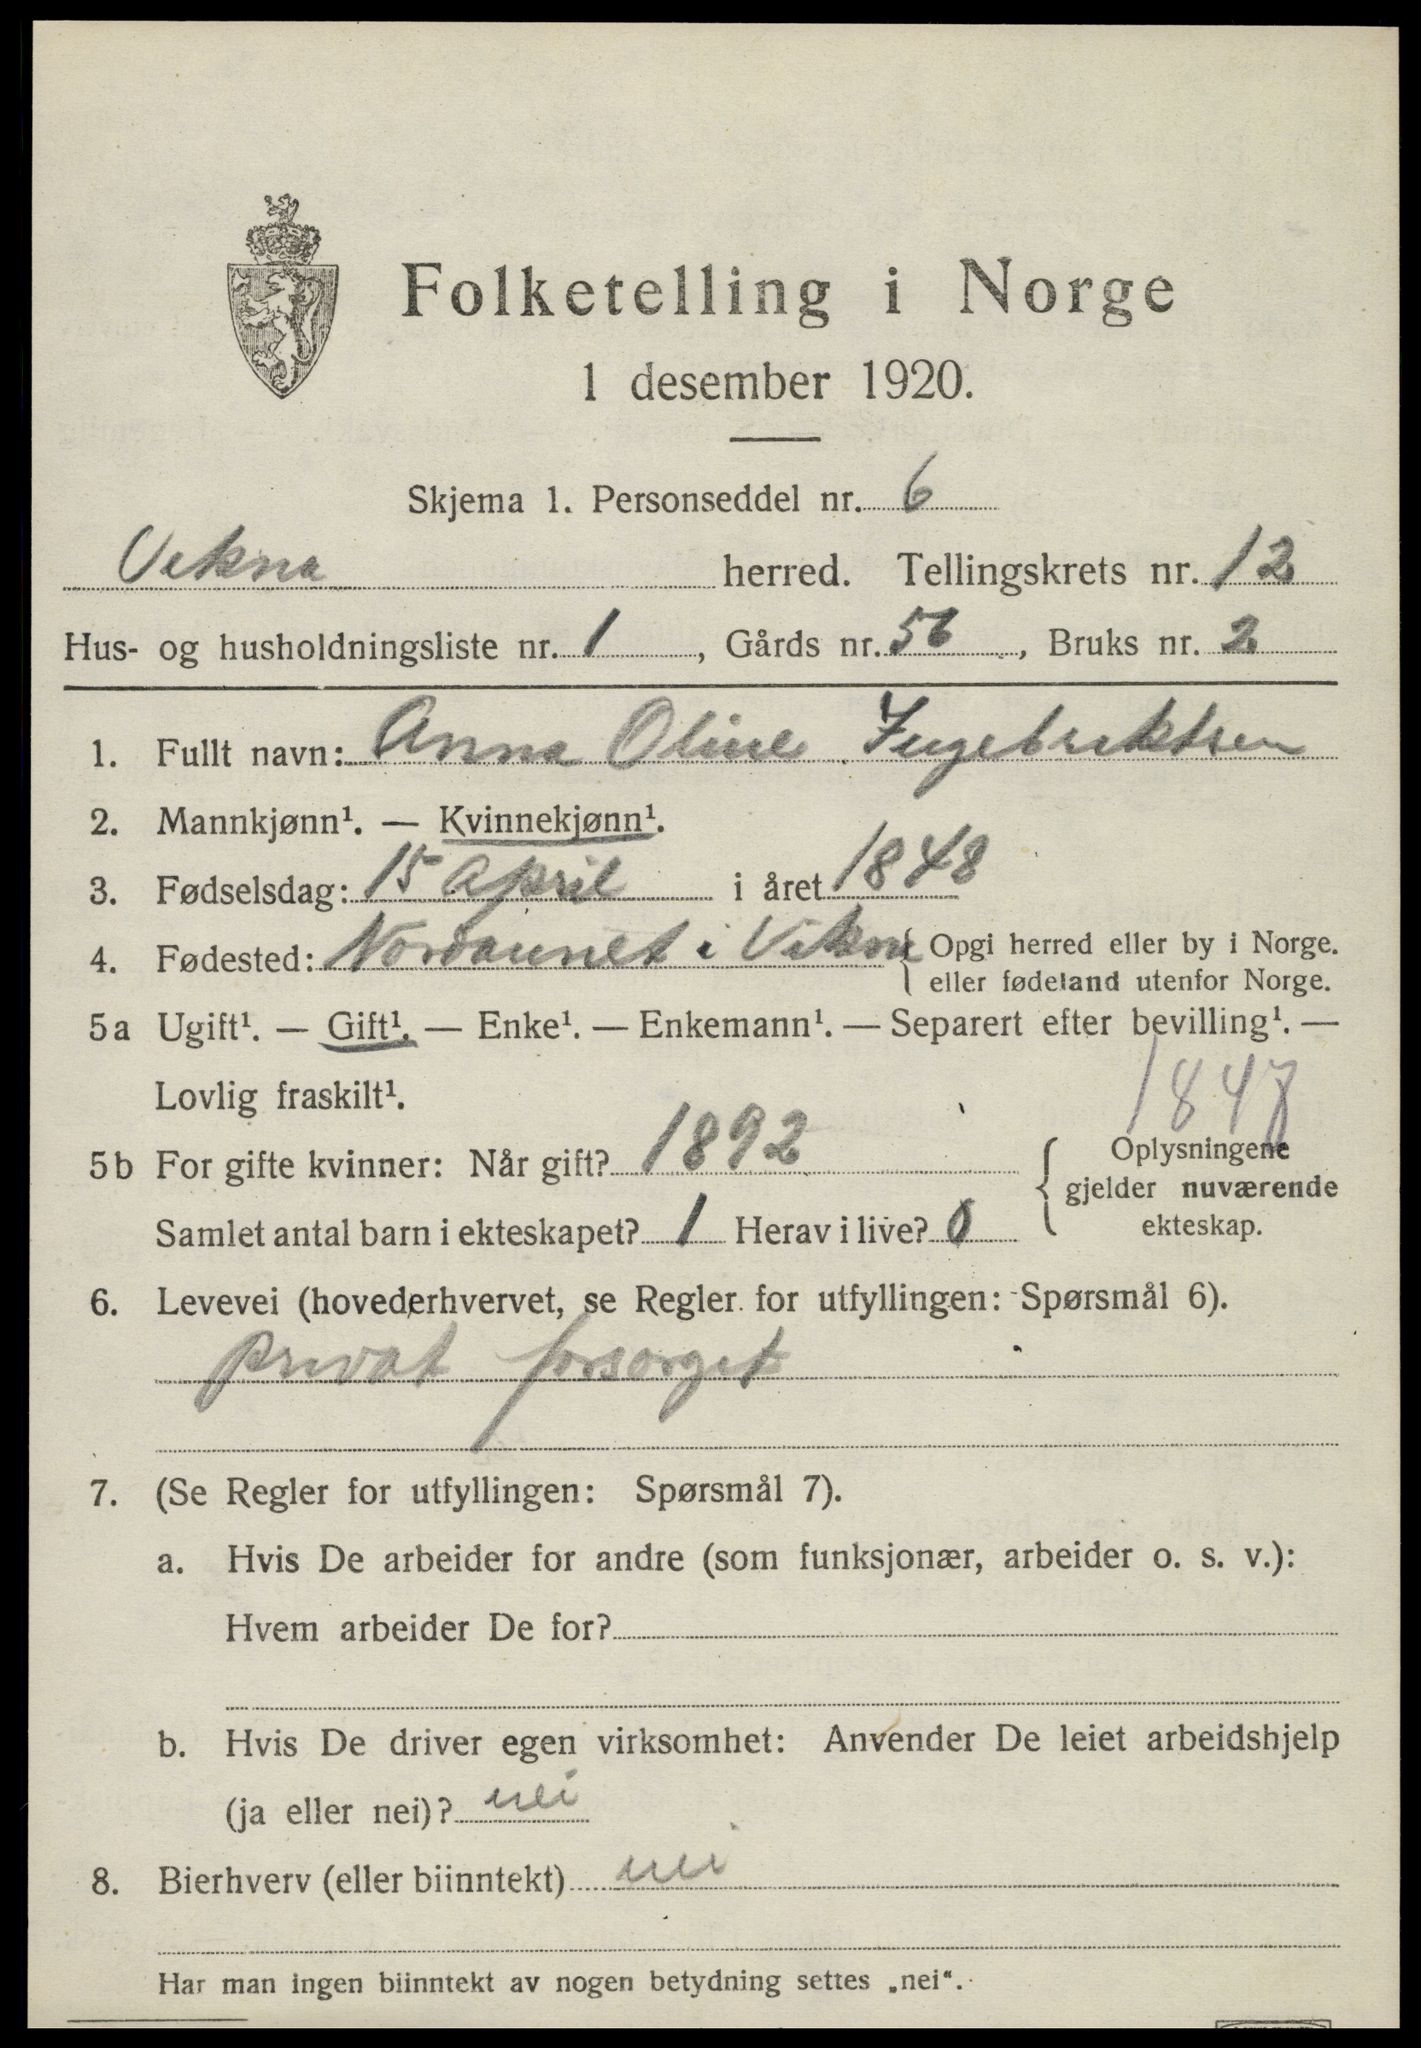 Folketelling i Norge
1 desember 1920.
Skjema 1. Personseddel nr. 6
Vikna herred. Tellingskrets nr. 12
Hus- og husholdningsliste nr. 1, Gårds nr. 56, Bruks nr. 2
1. Fullt navn: Anna Oline Ingebriktsen
2. Mannkjønn¹. — Kvinnekjønn¹.
3. Fødselsdag: 15 April i året 1848
4. Fødested: Nordaunet i Vikna { Opgi herred eller by i Norge.
eller fødeland utenfor Norge.
5a Ugift¹. — Gift¹. — Enke¹. — Enkemann¹. — Separert efter bevilling¹. —
Lovlig fraskilt¹.
1847
5b For gifte kvinner: Når gift? 1892
Samlet antal barn i ekteskapet? 1 Herav i live? 0
{ Oplysningene
gjelder nuværende
ekteskap.
6. Levevei (hovederhvervet, se Regler for utfyllingen: Spørsmål 6).
privat forsørget
7. (Se Regler for utfyllingen: Spørsmål 7).
a. Hvis De arbeider for andre (som funksjonær, arbeider o. s. v.):
Hvem arbeider De for?
b. Hvis De driver egen virksomhet: Anvender De leiet arbeidshjelp
(ja eller nei)? nei
8. Bierhverv (eller biinntekt) nei
Har man ingen biinntekt av nogen betydning settes „nei“.